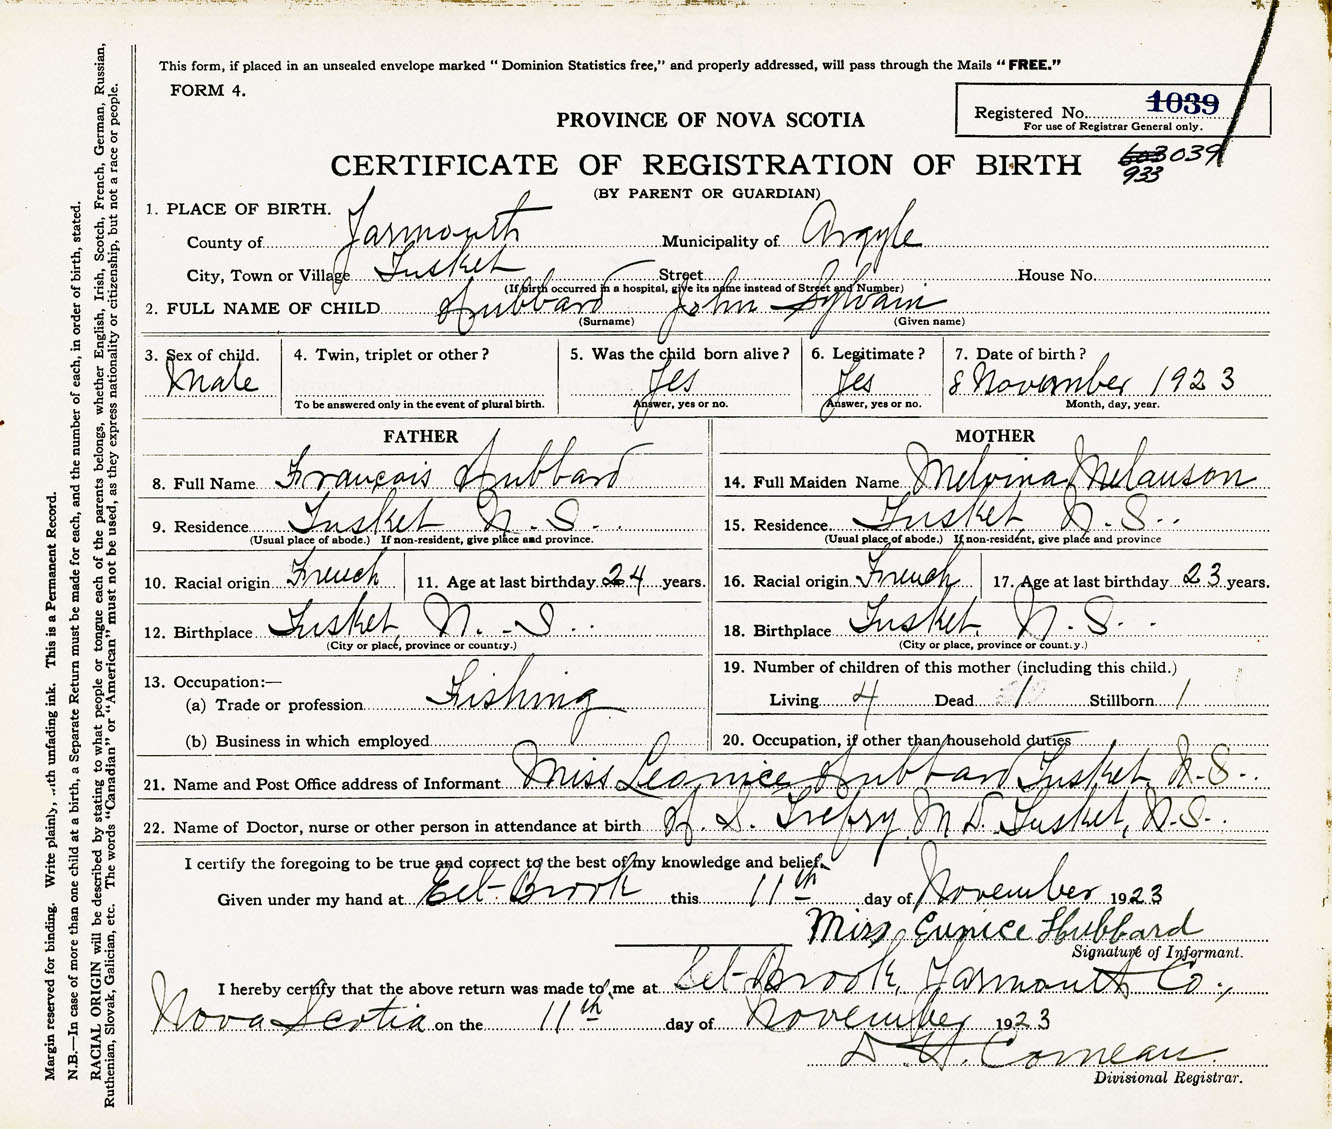 This form, if placed in an unsealed envelope marked "Dominion Statistics free," and properly addressed, will pass through the Mails "FREE."
FORM 4.
Registered No. 1039
For use of Registrar General only.
PROVINCE OF NOVA SCOTIA
CERTIFICATE OF REGISTRATION OF BIRTH
603 039
933
(BY PARENT OR GUARDIAN)
1. PLACE OF BIRTH.
County of Yarmouth Municipality of Argyle
City, Town or Village Tusket Street House No.
(If birth occurred in a hospital, give its name instead of Street and Number)
2. FULL NAME OF CHILD Hubbard John Sylvain
(Surname) (Given name)
3. Sex of child. 4. Twin, triplet or other? 5. Was the child born alive? 6. Legitimate? 7. Date of birth?
Male Yes Yes 8 November 1923
To be answered only in the event of plural birth. Answer, yes or no. Answer, yes or no. Month, day, year.
FATHER
8. Full Name François Hubbard
9. Residence Tusket N.S.
(Usual place of abode.) If non-resident, give place and province.
10. Racial origin French 11. Age at last birthday 24 years.
12. Birthplace Tusket, N.S.
(City or place, province or country.)
13. Occupation:—
(a) Trade or profession Fishing
(b) Business in which employed
MOTHER
14. Full Maiden Name Melvina Melanson
15. Residence Tusket, N.S.
(Usual place of abode.) If non-resident, give place and province
16. Racial origin French 17. Age at last birthday 23 years.
18. Birthplace Tusket, N.S.
(City or place, province or country.)
19. Number of children of this mother (including this child.)
Living 4 Dead 1 Stillborn 1
20. Occupation, if other than household duties
21. Name and Post Office address of Informant Miss Leonice Hubbard Tusket, N.S.
22. Name of Doctor, nurse or other person in attendance at birth Trefry M.D. Tusket, N.S.
I certify the foregoing to be true and correct to the best of my knowledge and belief.
Given under my hand at Eel-Brook this 11th day of November 1923
Miss Eunice Hubbard
Signature of Informant.
I hereby certify that the above return was made to me at Eel-Brook, Yarmouth Co.,
Nova Scotia on the 11th day of November 1923
Comeau
Divisional Registrar.
Margin reserved for binding. Write plainly, with unfading ink. This is a Permanent Record.
N.B.—In case of more than one child at a birth, a Separate Return must be made for each, and the number of each, in order of birth, stated.
RACIAL ORIGIN will be described by stating to what people or tongue each of the parents belongs, whether English, Irish, Scotch, French, German, Russian,
Ruthenian, Slovak, Galician, etc. The words "Canadian" or "American" must not be used, as they express nationality or citizenship, but not a race or people.